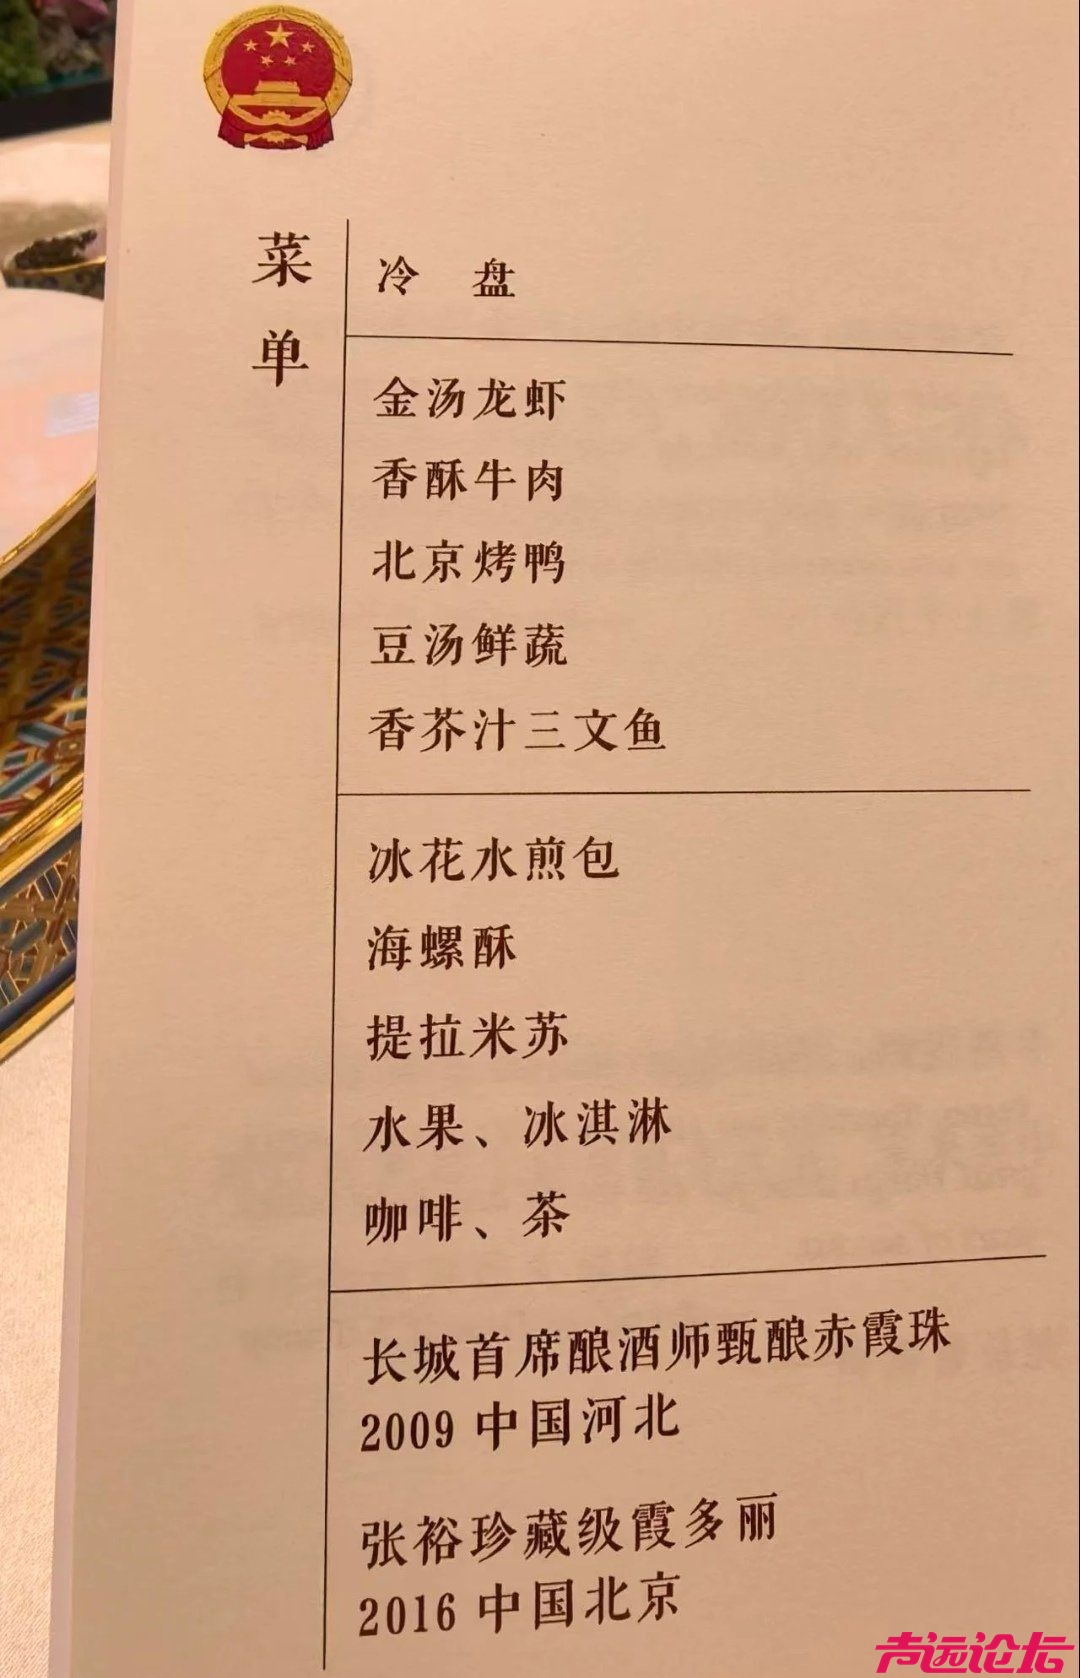 菜单
冷 盘
金汤龙虾
香酥牛肉
北京烤鸭
豆汤鲜蔬
香芥汁三文鱼
冰花水煎包
海螺酥
提拉米苏
水果、冰淇淋
咖啡、茶
长城首席酿酒师甄酿赤霞珠
2009 中国河北
张裕珍藏级霞多丽
2016 中国北京
声远论坛